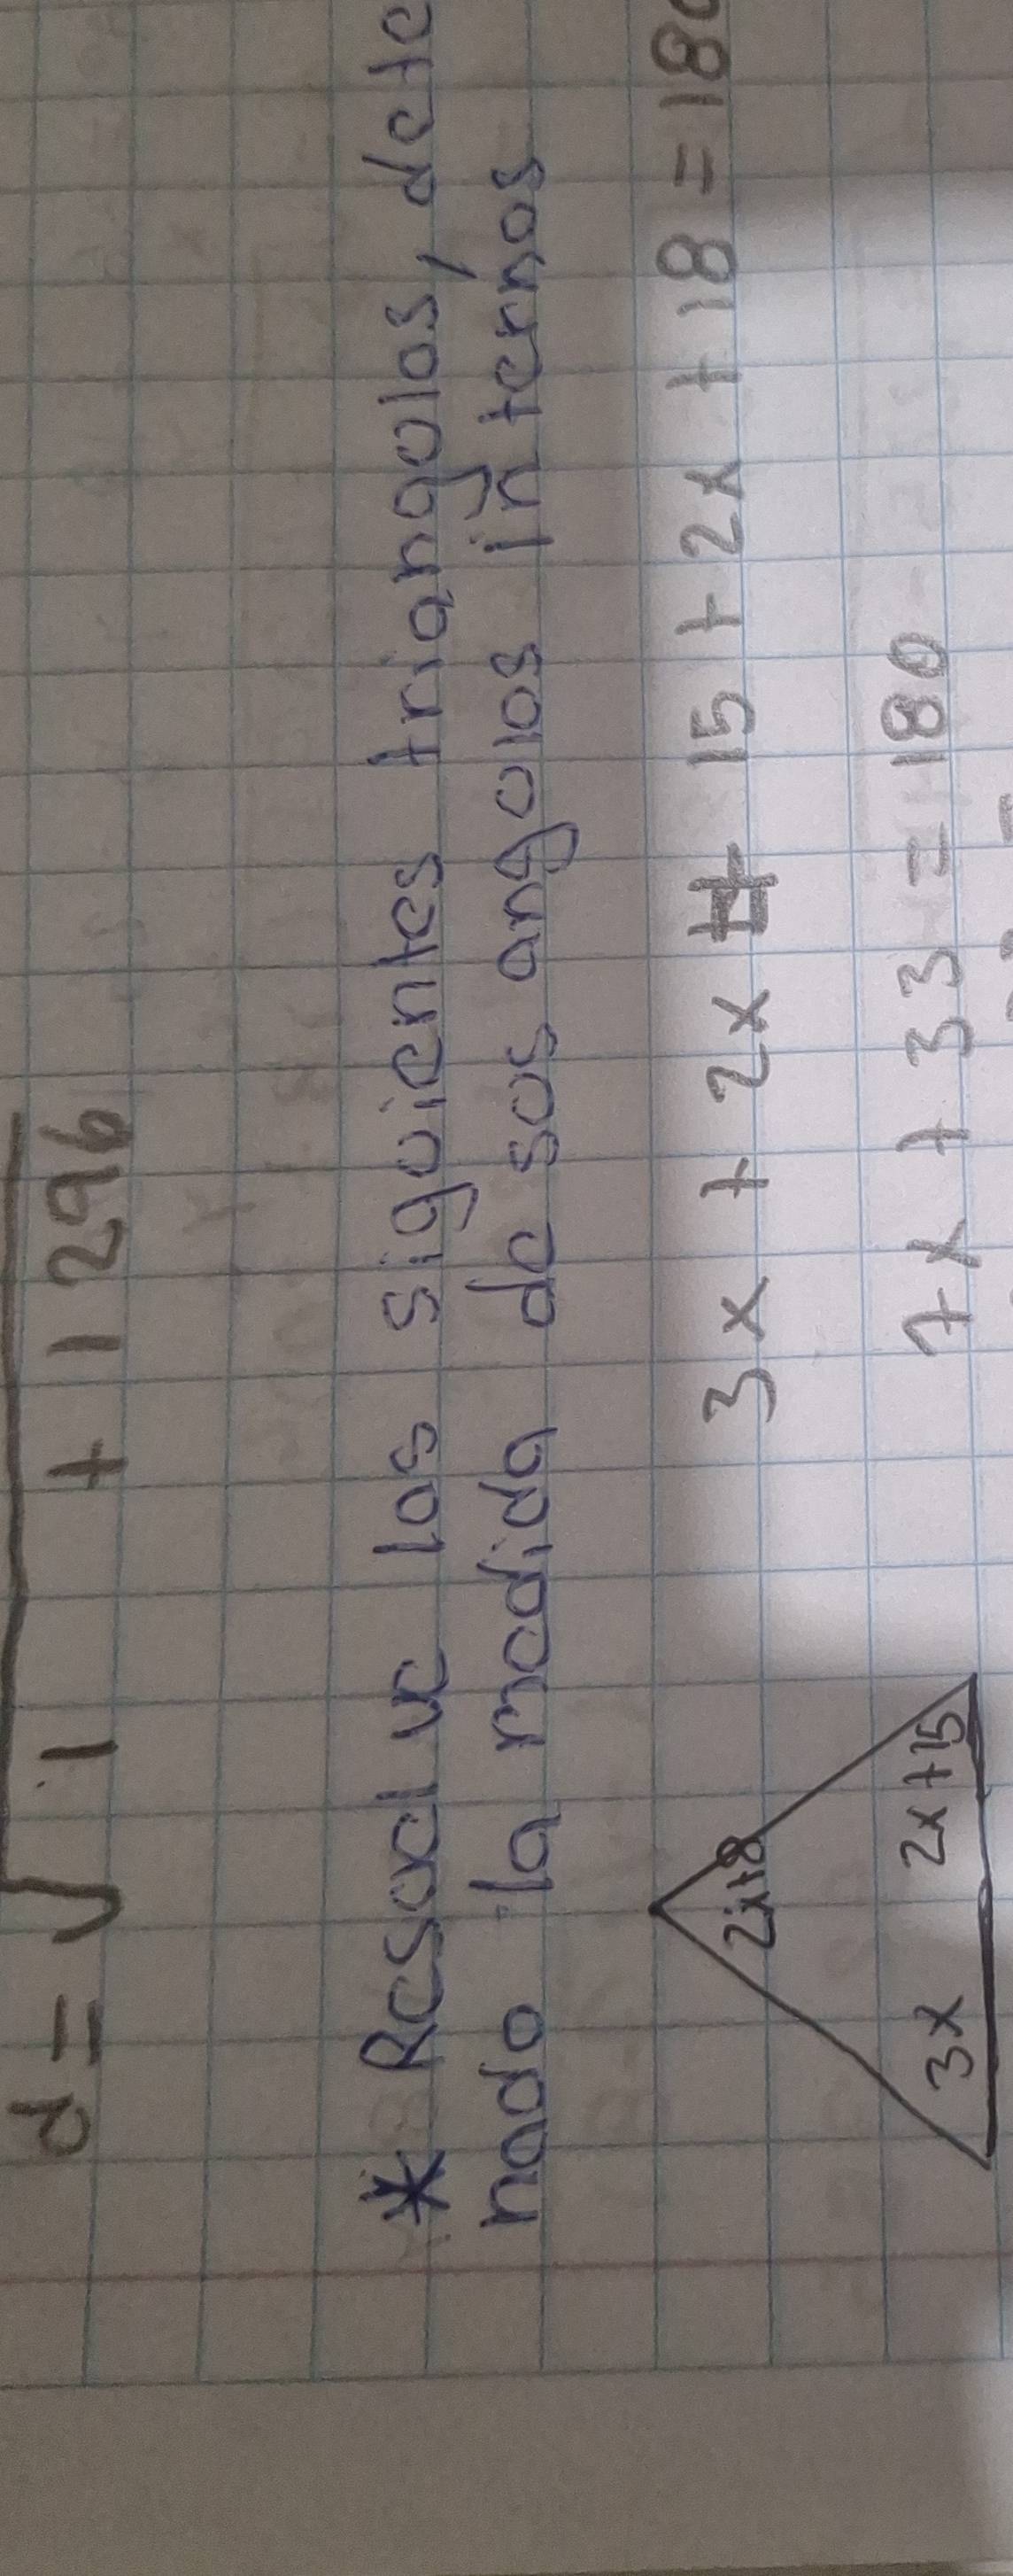 d = √ 1 + 1296
* Resuelve los siguientes triangulos, dete
nado la medida de sus angulos internos
2x+8
3x 2x+15
3x + 2x + 15 + 2x + 18 = 180
7x + 33 = 180